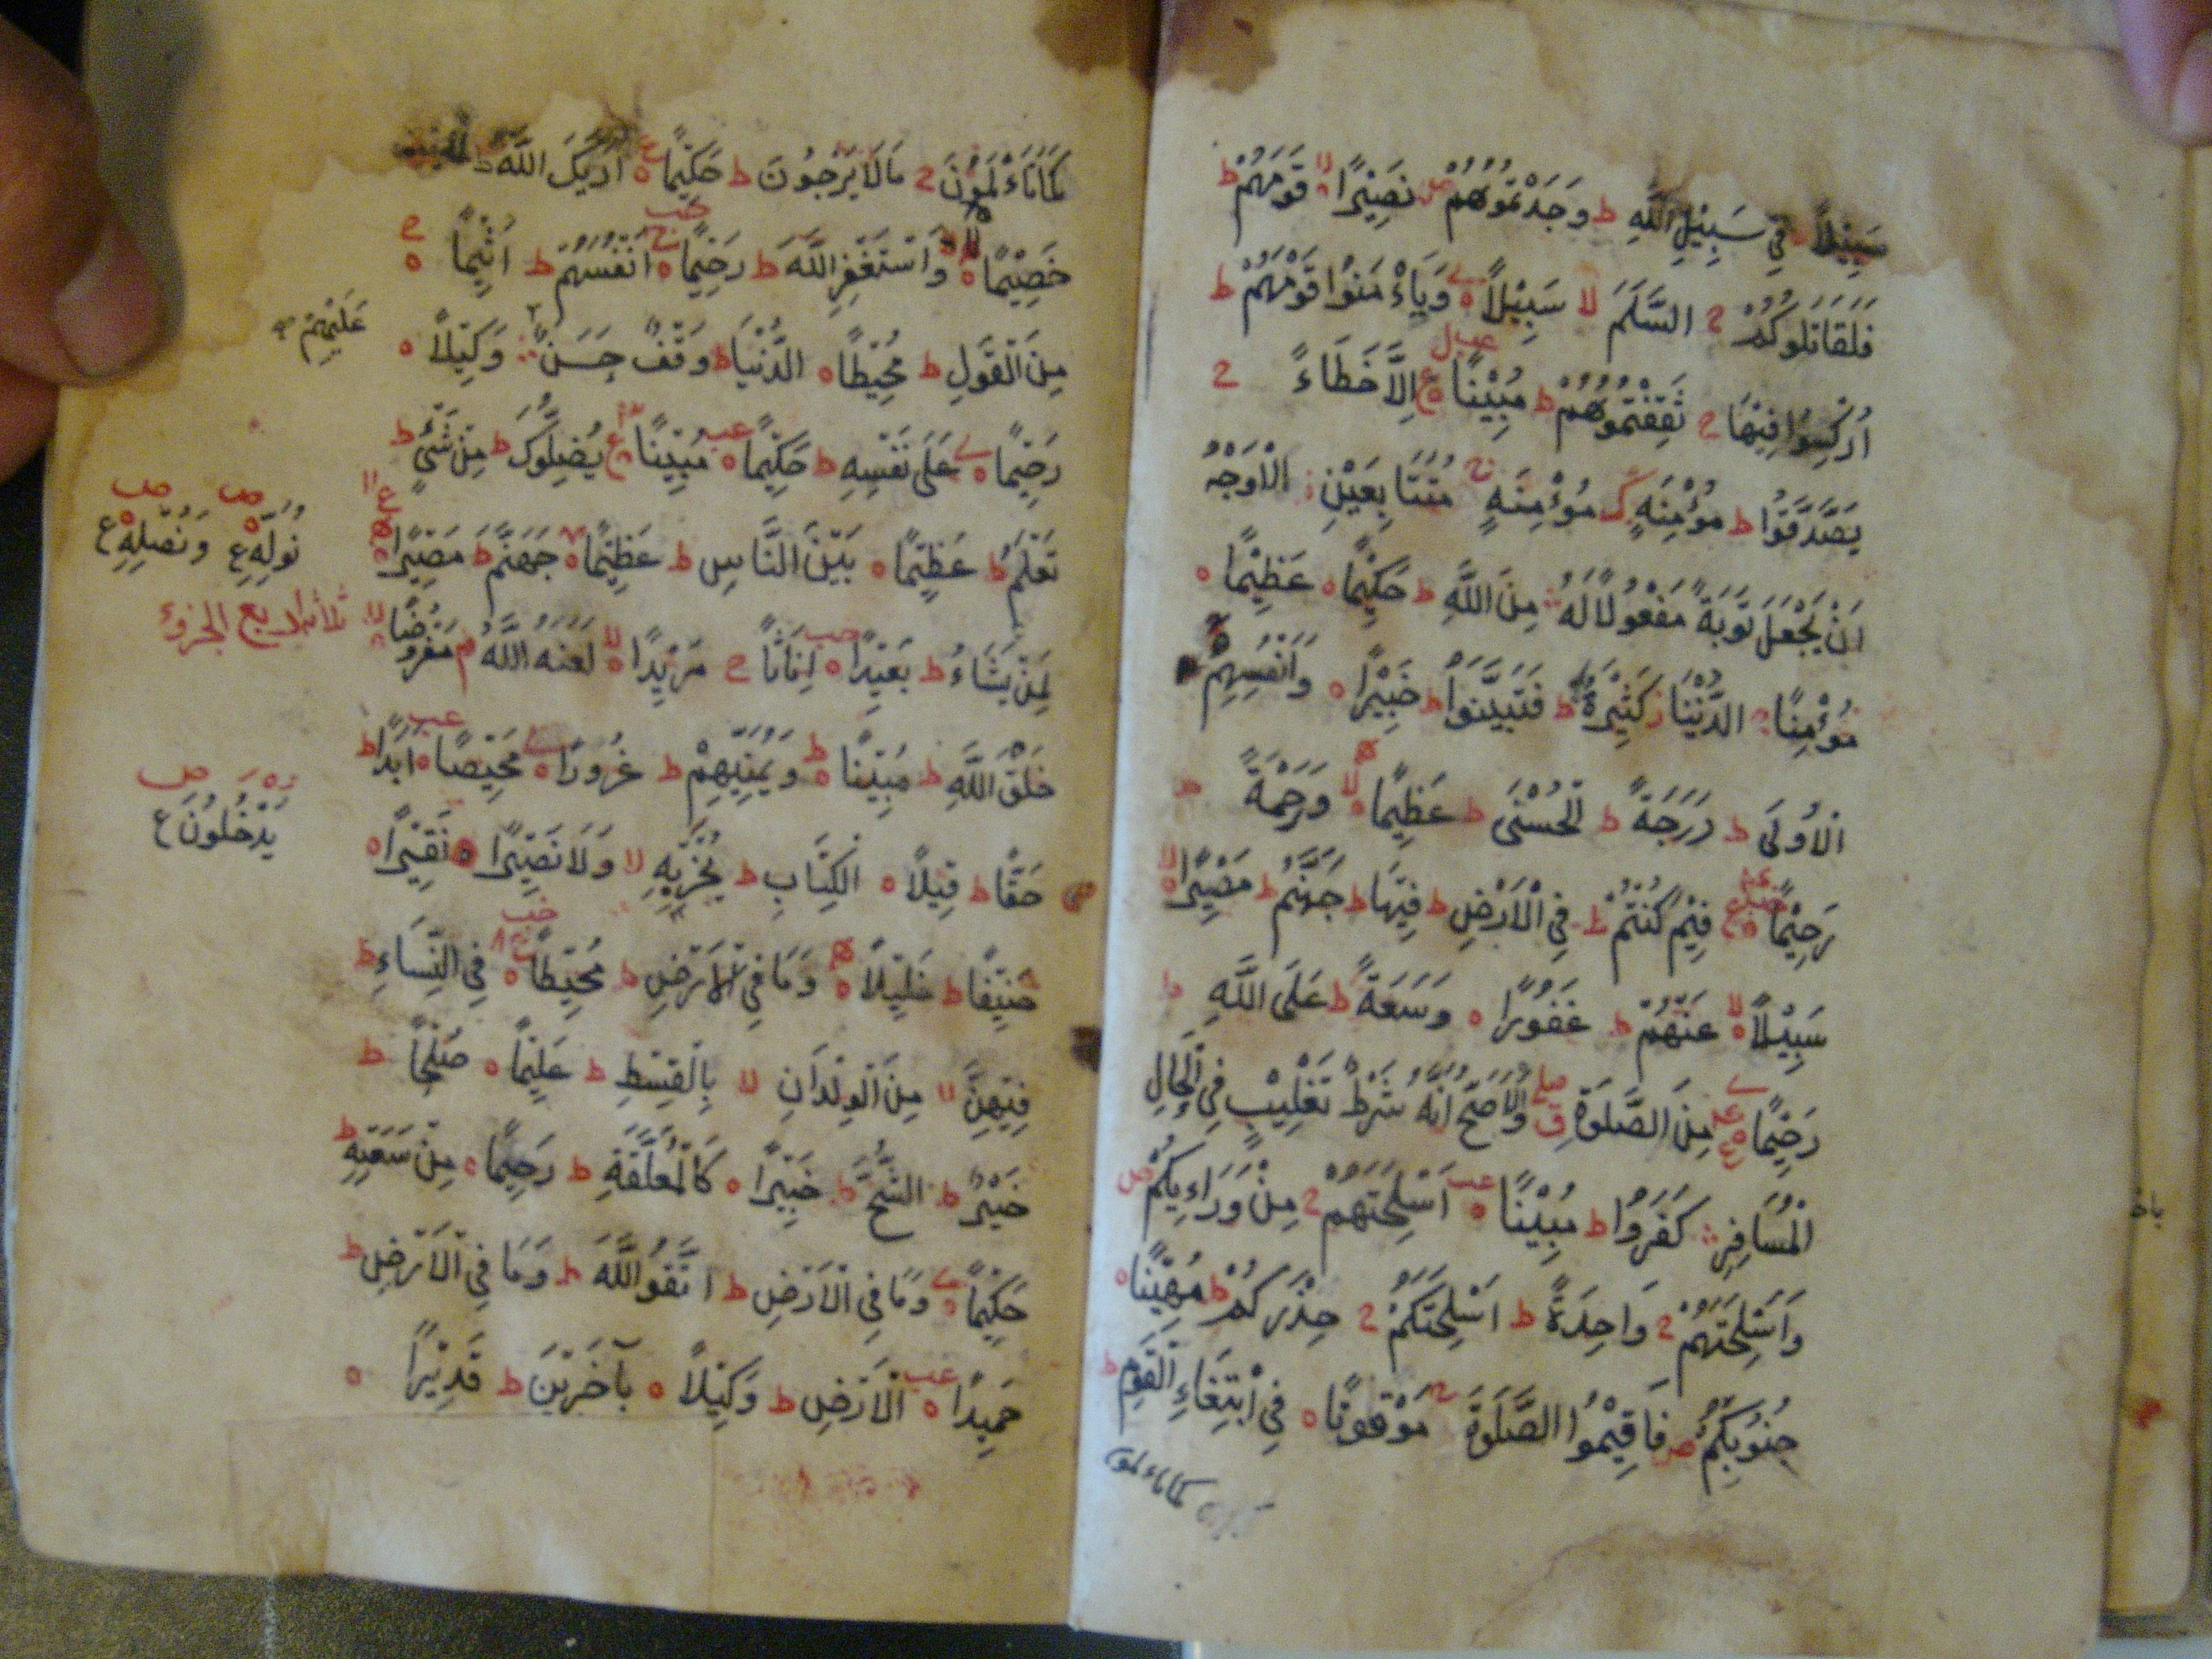 سَبِيْلًا فِي سَبِيْلِ اللَّهِ ط وَجَدْتُمُوْهُمْ ص نَصِيْرًا ه لا قَوْمَهُمْ ط
فَلَقَاتَلُوكُمْ ج السَّلَمَ لا سَبِيْلًا ه وَيَاءْمَنُوْا قَوْمَهُمْ ط
اُرْكِسُوْا فِيْهَا ج ثَقِفْتُمُوْهُمْ ط مُبِيْنًا ه ع اِلَّا خَطَاءً ج
يَصَّدَّقُوْا ط مُؤْمِنَةٍ مُؤْمِنَةٍ ج مُتَتَابِعَيْنِ ز الْاَوْجَهُ
اَنْ يَجْعَلَ تَوْبَةً مَفْعُوْلًا لَهُ مِنَ اللَّهِ ط حَكِيْمًا ه عَظِيْمًا ه
مُؤْمِنًا ج الدُّنْيَا ز كَثِيْرَةٌ ط فَتَبَيَّنُوْا ط خَبِيْرًا ه وَاَنْفُسِهِمْ
الْاُوْلَى ط دَرَجَةً ط الْحُسْنَى ط عَظِيْمًا ه لا وَرَحْمَةً ط
رَحِيْمًا ه ع فِيْمَ كُنْتُمْ ط فِي الْاَرْضِ ط فِيْهَا ط جَهَنَّمُ ط مَصِيْرًا ه لا
سَبِيْلًا ه لا عَنْهُمْ ط غَفُوْرًا ه وَسَعَةً ط عَلَى اللَّهِ ط
رَحِيْمًا ه ع مِنَ الصَّلَوةِ ق صلى وَالْاَصَحُّ اَنَّهُ شَرْطُ تَغْلِيْبٍ فِي الْحَالِ
الْمُسَافِرِ كَفَرُوْا ط مُبِيْنًا ه عب اَسْلِحَتَهُمْ ج مِنْ وَرَاءِيكُمْ ص
وَاَسْلِحَتَهُمْ ج وَاحِدَةً ط اَسْلِحَتَكُمْ ج حِذْرَكُمْ ط مُهِيْنًا ه
جُنُوْبِكُمْ ص فَاَقِيْمُوا الصَّلَوةَ ج مَوْقُوْتًا ه فِي ابْتِغَاءِ الْقَوْمِ ط
كماتاءلمون
كَمَاتَاءْلَمُوْنَ ج مَالَا يَرْجُوْنَ ط حَكِيْمًا ه ع اَرَيكَ اللَّهُ ط
خَصِيْمًا ه لا وَاسْتَغْفِرِ اللَّهَ ط رَحِيْمًا ه ج اَنْفُسَهُمْ ط اَثِيْمًا ه ج
مِنَ الْقَوْلِ ط مُحِيْطًا ه الدُّنْيَا ط وَقْفٌ حَسَنٌ وَكِيْلًا ه
عَلَيْهِمْ
رَحِيْمًا ه عَلَى نَفْسِهِ ط حَكِيْمًا ه عب مُبِيْنًا ه ع يُضِلُّوكَ ط مِنْ شَيْءٍ ط
تَعْلَمُ ط عَظِيْمًا ه بَيْنَ النَّاسِ ط عَظِيْمًا ه جَهَنَّمَ ط مَصِيْرًا ه ع
نُوَلِّهِ ع وَنُصْلِهِ ع
لِمَنْ يَشَاءُ ط بَعِيْدًا ه اِنَاثًا ج مَرِيْدًا ه لا لَعَنَهُ اللَّهُ م مَفْرُوْضًا ه لا
ثلاثة ارباع الجزوء
خَلْقَ اللَّهِ ط مُبِيْنًا ه ط وَيُمَنِّيْهِمْ ط غُرُوْرًا ه مَحِيْصًا ه عب اَبَدًا ط
حَقًّا ط قِيْلًا ه الْكِتَابِ ط يُجْزَ بِهِ لا وَلَا نَصِيْرًا ه نَقِيْرًا ه
يَدْخُلُوْنَ ع
حَنِيْفًا ط خَلِيْلًا ه وَمَا فِي الْاَرْضِ ط مُحِيْطًا ه ع فِي النِّسَاءِ ط
فِيْهِنَّ لا مِنَ الْوِلْدَانِ لا بِالْقِسْطِ ط عَلِيْمًا ه صُلْحًا ط
خَيْرٌ ط الشُّحَّ ط خَبِيْرًا ه كَالْمُعَلَّقَةِ ط رَحِيْمًا ه مِنْ سَعَتِهِ ط
حَكِيْمًا ه وَمَا فِي الْاَرْضِ ط اتَّقُوا اللَّهَ ط وَمَا فِي الْاَرْضِ ط
حَمِيْدًا ه عب الْاَرْضِ ط وَكِيْلًا ه بِآخَرِيْنَ ط قَدِيْرًا ه